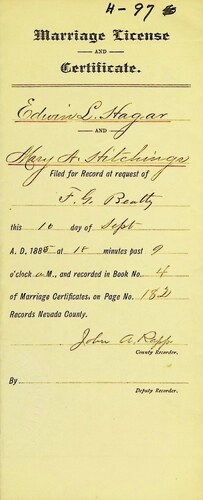 4-97
Marriage License
AND
Certificate.
Edwin L. Hagar
AND
Mary A. Hitchings
Filed for Record at request of
F. G. Beatty
this 10 day of Sept
A. D. 1885 at 10 minutes past 9
o'clock a M., and recorded in Book No. 4
of Marriage Certificates, on Page No. 182
Records Nevada County.
John A. Rapp
County Recorder.
By
Deputy Recorder.